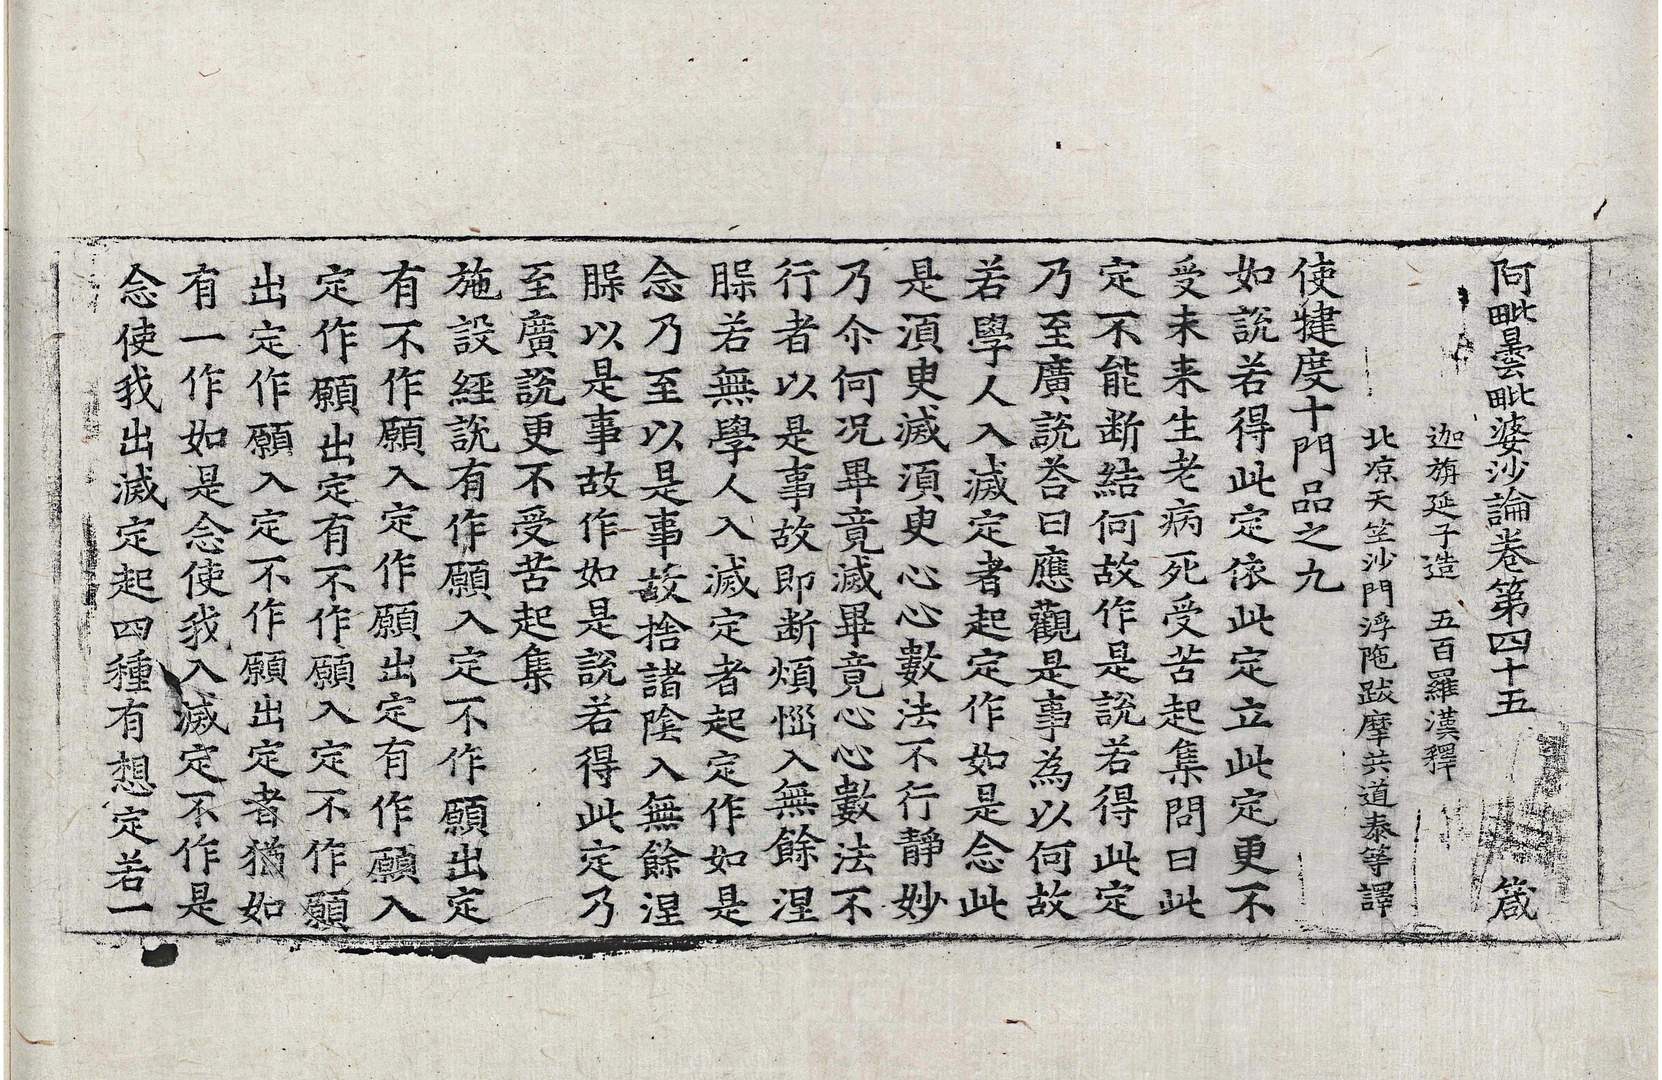 阿毗曇毗婆沙論卷第四十五　箴
迦旃延子造　五百羅漢釋
北涼天竺沙門浮陁跋摩共道泰等譯
使揵度十門品之九
如說若得此定依此定立此定更不
受未来生老病死受苦起集問曰此
定不能断結何故作是說若得此定
乃至廣說荅曰應觀是事為以何故
若學人入滅定者起定作如是念此
是湏臾滅湏臾心心數法不行静妙
乃尒何況畢竟滅畢竟心心數法不
行者以是事故即断煩惱入無餘涅
𦛁若無學人入滅定者起定作如是
念乃至以是事故捨諸陰入無餘涅
𦛁以是事故作如是說若得此定乃
至廣說更不受苦起集
施設經說有作願入定不作願出定
有不作願入定作願出定有作願入
定作願出定有不作願入定不作願
出定作願入定不作願出定者猶如
有一作如是念使我入滅定不作是
念使我出滅定起四種有想定若一